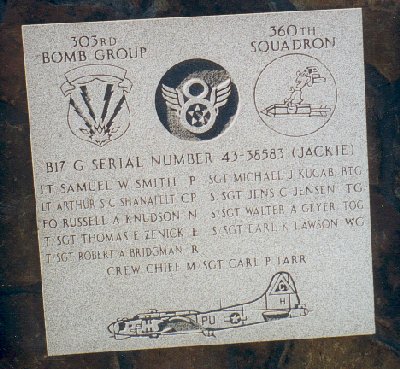 303RD
BOMB GROUP
360TH
SQUADRON
8
B17 G SERIAL NUMBER 43-38583 (JACKIE)
LT SAMUEL W SMITH P
SGT MICHAEL J KUCAB BTG
LT ARTHUR S C SHANAFELT CP
S SGT JENS C JENSEN TG
FO RUSSELL A KNUDSON N
S SGT WALTER A GEYER TOG
T SGT THOMAS E ZENICK E
S SGT EARL K LAWSON WG
T/SGT ROBERT A BRIDGMAN R
CREW CHIEF M/SGT CARL P TARR
G
H
PU